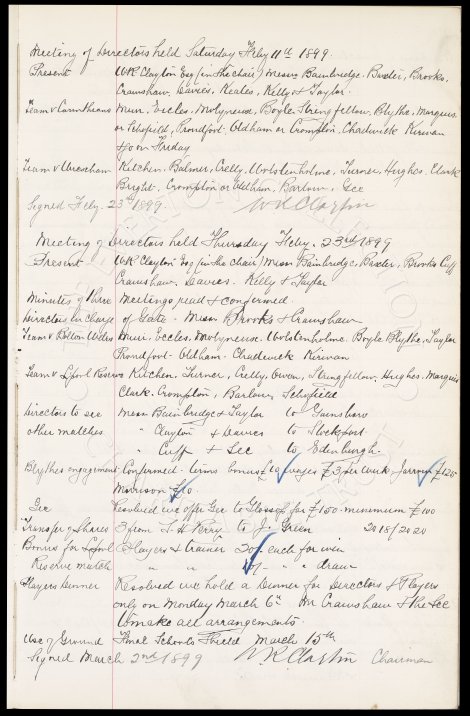 Meeting of Directors held Saturday Feby 11th 1899.
Present W R Clayton Esq (in the chair) Messrs Bainbridge, Baxter, Brooks,
Crawshaw, Davies, Keates, Kelly & Taylor.
Team v Corinthians Muir, Eccles, Molyneux, Boyle, Stringfellow, Blythe, Marquis
or Schofield, Proudfoot, Oldham or Crompton, Chadwick Kirwan
from Friday
Team v Wrexham Kitchen, Balmer, Crelly, Wolstenholme, Turner, Hughes, Clark
Bright, Crompton or Oldham, Barlow, Gee
Signed Feby. 23rd 1899 W R Clayton
Meeting of Directors held Thursday Feby. 23rd 1899
Present W R Clayton Esq (in the chair) Messrs Bainbridge, Baxter, Brooks Cuff
Crawshaw, Davies. Kelly & Taylor
Minutes of three Meetings read & confirmed.
Directors in charge of Gate. Messrs Brooks & Crawshaw
Team v Bolton Wders Muir, Eccles, Molyneux, Wolstenholme, Boyle Blythe, Taylor
Proudfoot. Oldham. Chadwick Kirwan
Team v Lpool Reserves Kitchen. Turner, Crelly, Owen, Stringfellow, Hughes, Marquis
Clark. Crompton, Barlow, Schofield
Directors to see Messrs Bainbridge & Taylor to Gainsboro
other matches " Clayton & Davies to Stockport
" Cuff & Gee to Edinburgh.
Blythes engagement Confirmed. terms bonus £10 wages £3 per week Jarrow £125
Morrison £10.
Gee Resolved we offer Gee to Glossop for £150. minimum £100
Transfer of Shares 3 from T. H. to J. Green 2018/2020
Bonus for Lpool Players & trainer 20/- each for win
Reserve match " " 10/- " " draw
Players Dinner Resolved we hold a Dinner for Directors & Players
only on Monday March 6th Mr Crawshaw & the Sec
to make all arrangements.
Use of Ground Final Schools Shield March 15th
Signed March 2nd 1899 W R Clayton Chairman